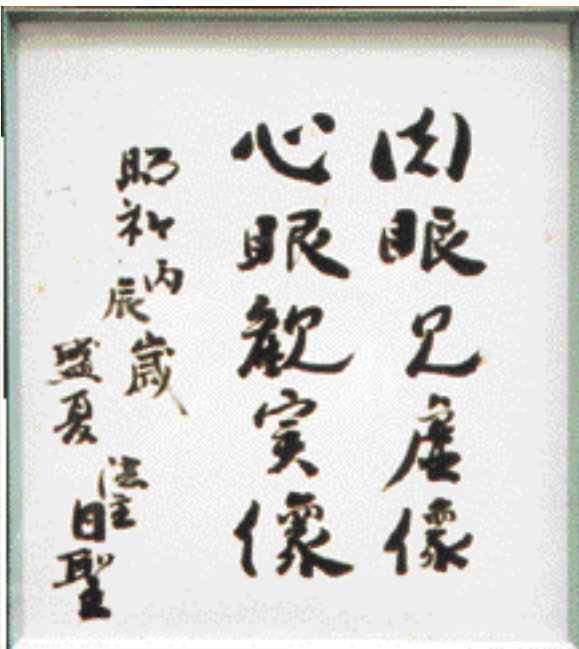 肉眼見虚像
心眼観実像
昭和丙辰歳
盛夏
法主日聖